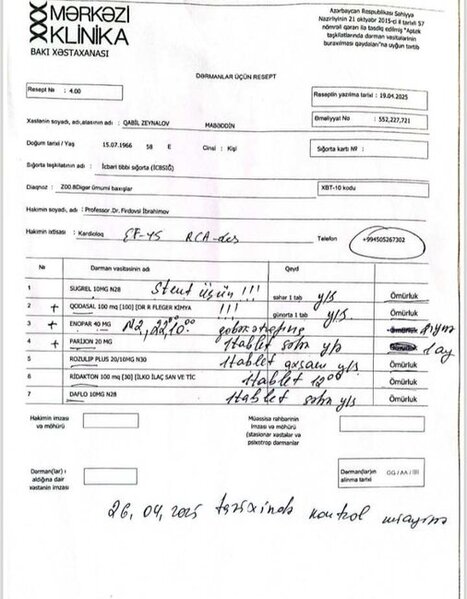 MƏRKƏZİ
KLİNİKA
BAKI XƏSTAXANASI
Azərbaycan Respublikası Səhiyyə
Nazirliyinin 21 oktyabr 2015-ci il tarixli 57
nömrəli qərarı ilə təsdiq edilmiş "Aptek
təşkilatlarında dərman vasitələrinin
buraxılması qaydaları"na uyğun tərtib
DƏRMANLAR ÜÇÜN RESEPT
Resept № : 4.00
Reseptin yazılma tarixi : 19.04.2025
Əməliyyat No : 552,227,721
Xəstənin soyadı, adı,atasının adı : QABİL ZEYNALOV MABƏDDİN
Doğum tarixi / Yaş 15.07.1966 58 E Cinsi : Kişi
Sığorta kartı № :
Sığorta təşkilatının adı : İcbari tibbi sığorta (İCBSİĞ)
Diaqnoz : Z00.8Digər ümumi baxışlar
XBT-10 kodu
Həkimin soyadı, adı : Professor.Dr. Firdovsi İbrahimov
Həkimin ixtisası : Kardioloq EF-45 RCA-des
Telefon +994505267302
№ Dərman vasitəsinin adı Qeyd
1 SUGREL 10MG N28 Stent üçün !!! səhər 1 tab y/s Ömürlük
2 + QODASAL 100 mq [100] [DR R PLEGER KİMYA !!! günorta 1 tab y/s Ömürlük
3 + ENOPAR 40 MG N2, 22 10:00
4 + PARİJON 20 MG 1tablet səhər y/ə 1 ay
5 ROZULIP PLUS 20/10MG N30 1tablet axşam y/s Ömürlük
6 RİDAKTON 100 mq [30] [İLKO İLAÇ SAN VE TİC 1tablet 12:00 Ömürlük
7 DAFLO 10MG N28 1tablet səhər y/s Ömürlük
Həkimin imzası
və möhürü
Müəssisə rəhbərinin
imzası və möhürü
(stasionar xəstələr və
psixotrop dərmanlar
Dərman(lar) ı
aldığına dair
xəstənin imzası
Dərman(lar)ın
alınma tarixi
GG / AA / İİİİ
26.04.2025 tarixində kontrol müayinə